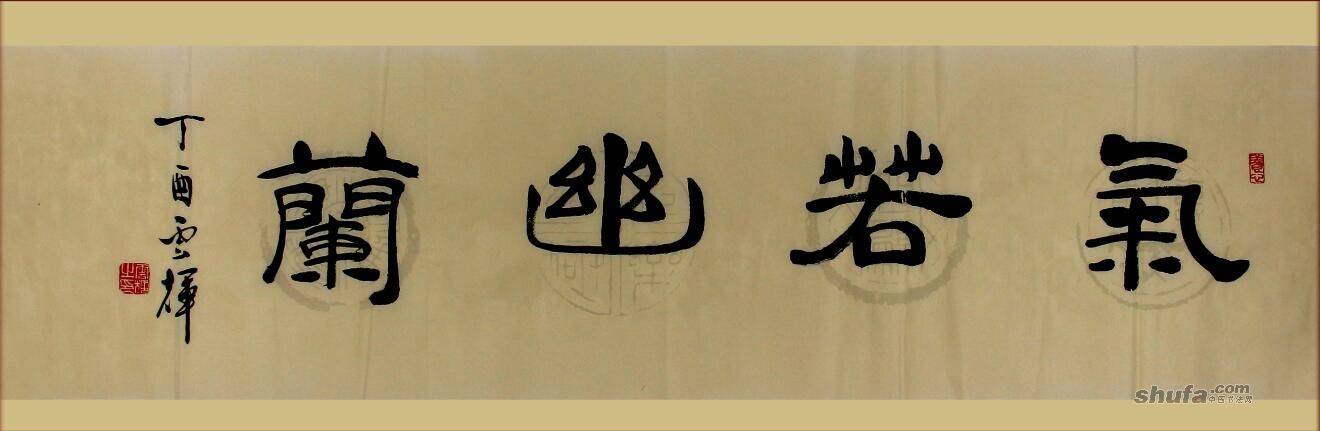 氣若幽蘭
丁酉雲輝
shufa.com
中国书法网